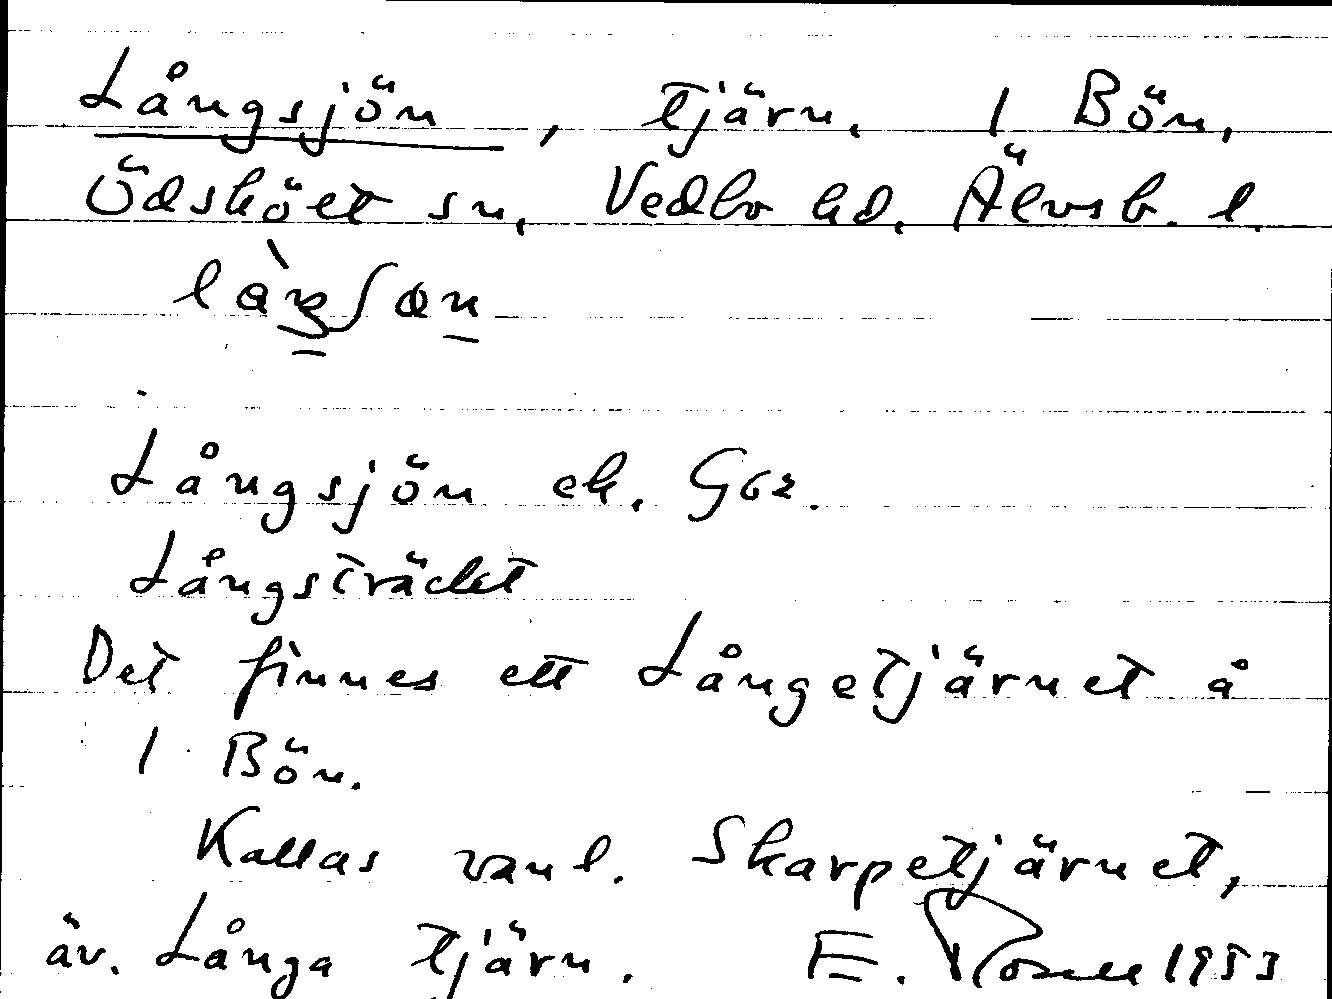 Långsjön, tjärn. 1 Bön,
Ödsköet sn, Vedbo hd. Älvsb. l.
Långsjön ek. G62.
Långsträcket
Det finnes ett Långetjärnet å
1 Bön.
Kallas vanl. Skarpetjärnet,
äv. Långa tjärn. E. 1953